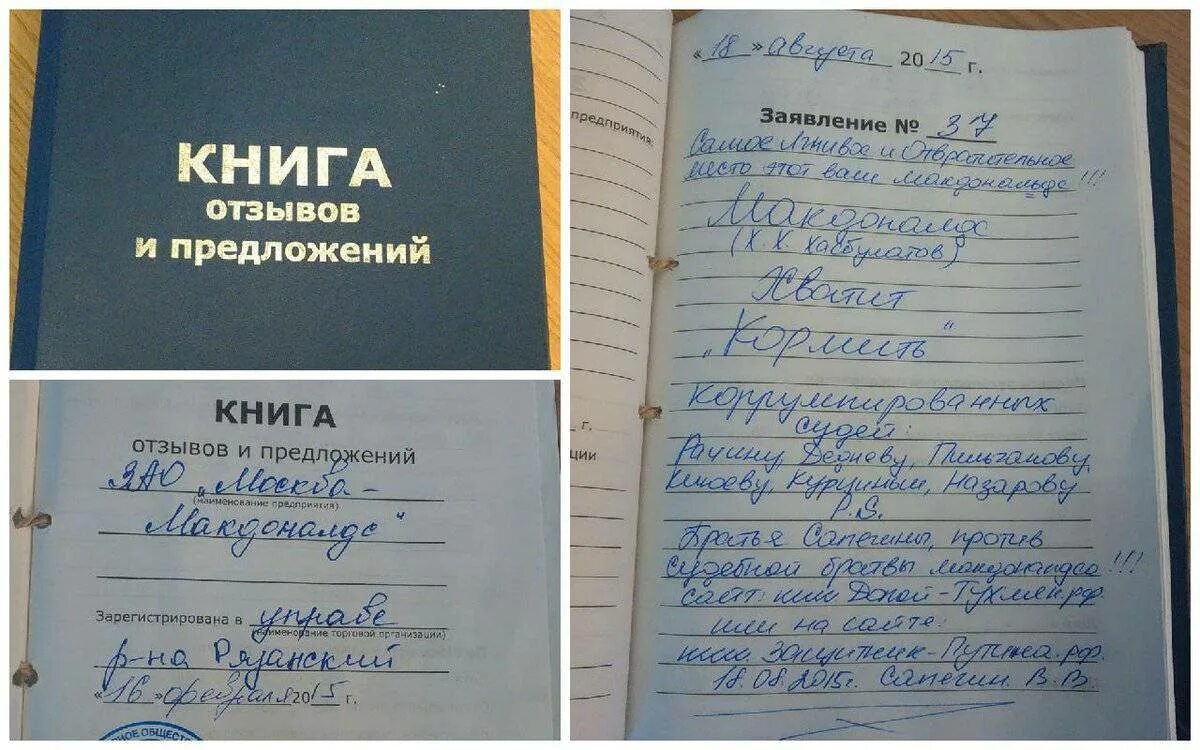 КНИГА
отзывов
и предложений
КНИГА
отзывов и предложений
ЗАО „Москва-
(наименование предприятия)
Макдоналдс“
Зарегистрирована в управе
(наименование торговой организации)
р-на Рязанский
«16» февраля 2015 г.
НОЕ ОБЩЕСТВ
предприятия:
г.
ции
«18» августа 2015 г.
Заявление № 37
Самое Лживое и Отвратительное
место этот ваш макдональдс!!!
Макдоналдс
(Х. Х. Хасбулатов)
Хватит
„Кормить“
Коррумпированных
судей:
Рачину, Дедневу, Пильганову,
Клюеву, Курциньш, Назарову
P.S.
Братья Сапегины, против
судебной братвы макдоналдса!!!
сайт: или Долой-Тухмен.рф.
или на сайте:
или. Защитник-Путина.рф.
18.08.2015г. Сапегин В.В.